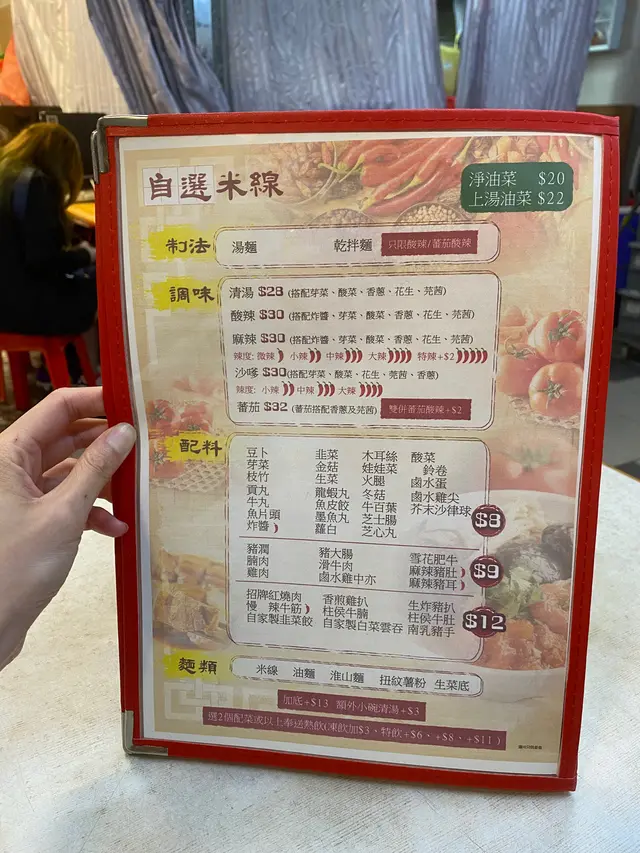 自選米線
淨油菜 $20
上湯油菜 $22
制法
湯麵 乾拌麵 只限酸辣/蕃茄酸辣
調味
清湯 $28 (搭配芽菜、酸菜、香蔥、花生、芫茜)
酸辣 $30 (搭配炸醬、芽菜、酸菜、香蔥、花生、芫茜)
麻辣 $30 (搭配炸醬、芽菜、酸菜、香蔥、花生、芫茜)
辣度: 微辣 小辣 中辣 大辣 特辣+$2
沙嗲 $30 (搭配芽菜、酸菜、花生、芫茜、香蔥)
辣度: 小辣 中辣 大辣
蕃茄 $32 (蕃茄搭配香蔥及芫茜) 雙併蕃茄酸辣+$2
配料
豆卜 韭菜 木耳絲 酸菜
芽菜 金菇 娃娃菜 鈴卷
枝竹 生菜 火腿 鹵水蛋
貢丸 龍蝦丸 冬菇 鹵水雞尖
牛丸 魚皮餃 牛百葉 芥末沙律球
魚片頭 墨魚丸 芝士腸
炸醬 蘿白 芝心丸
$8
豬潤 豬大腸 雪花肥牛
腩肉 滑牛肉 麻辣豬肚
雞肉 鹵水雞中亦 麻辣豬耳
$9
招牌紅燒肉 香煎雞扒 生炸豬扒
慢 辣牛筋 柱侯牛腩 柱侯牛肚
自家製韭菜餃 自家製白菜雲吞 南乳豬手
$12
麵類
米線 油麵 淮山麵 扭紋薯粉 生菜底
加底+$13 額外小碗清湯+$3
選2個配菜或以上奉送熱飲(凍飲加$3、特飲+$6、+$8、+$11)